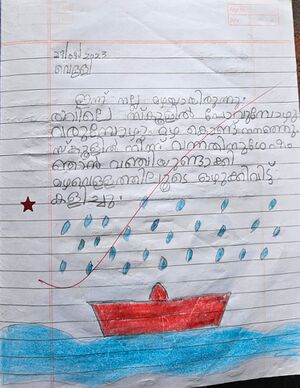 29/09/2023
വെള്ളി
ഇന്ന് നല്ല മഴയായിരുന്നു.
സ്കൂളിൽ പോവുമ്പോഴും
വരുമ്പോഴും മഴ കൊണ്ട് നനഞ്ഞു
സ്കൂളിൽ നിന്ന് വന്നതിനുശേഷം
ഞാൻ വഞ്ചിയുണ്ടാക്കി
മഴവെള്ളത്തിലൂടെ ഒഴുക്കിവിട്ട്
കളിച്ചു.